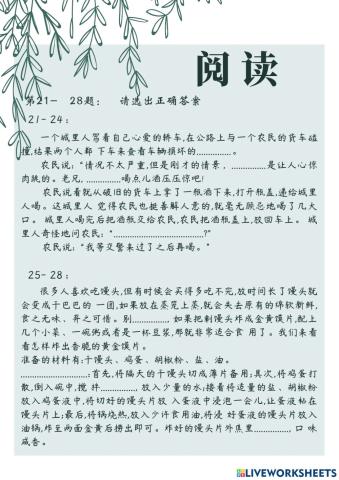 阅读
第21- 28题： 请选出正确答案
21-24：
一个城里人驾着自己心爱的轿车,在公路上与一个农民的货车碰
撞,结果两个人都 下车来查看车辆损坏的...............。
农民说："情况不太严重,但是刚才的情景，...............是让人心惊
肉跳的。老兄，...............喝点儿酒压压惊吧！
农民说着就从破旧的货车上拿了一瓶酒下来,打开瓶盖,递给城里
人喝。这城里人 觉得农民也挺善解人意的,就毫无顾忌地喝了几大
口。 城里人喝完后把酒瓶交给农民,农民把酒瓶盖上,放回车上。 城
里人奇怪地问农民："..............................?"
农民说："我等交警来过了之后再喝。"
25-28：
很多人喜欢吃馒头,但有时候会买得多吃不完,放时间长了馒头就
会变成干巴巴的 一团,如果放在蒸笼上蒸,就会失去原有的绵软新鲜,
食之无味、弃之可惜。别..............，如果把剩馒头炸成金黄馍片,配上
几个小菜、一碗粥或者是一杯豆浆,那就非常适合食 用了。我们来看
看怎样炸出香脆的黄金馍片。
准备的材料有:干馒头、鸡蛋、胡椒粉、盐、油。
.......................:首先,将隔夜的干馒头切成薄片备用;其次,将鸡蛋打
散,倒入碗中,搅 拌..............，放入少量的水;接着将适量的盐、胡椒粉
放入鸡蛋液中,将切好的馒头片放 入蛋液中浸泡一会儿,让蛋液粘在
馒头片上;最后,将锅烧热,放入少许食用油,将浸 好蛋液的馒头片放入
油锅,炸至两面金黄后捞出即可。炸好的馒头片外焦里..............，口 味
咸香。
LIVEWORKSHEETS